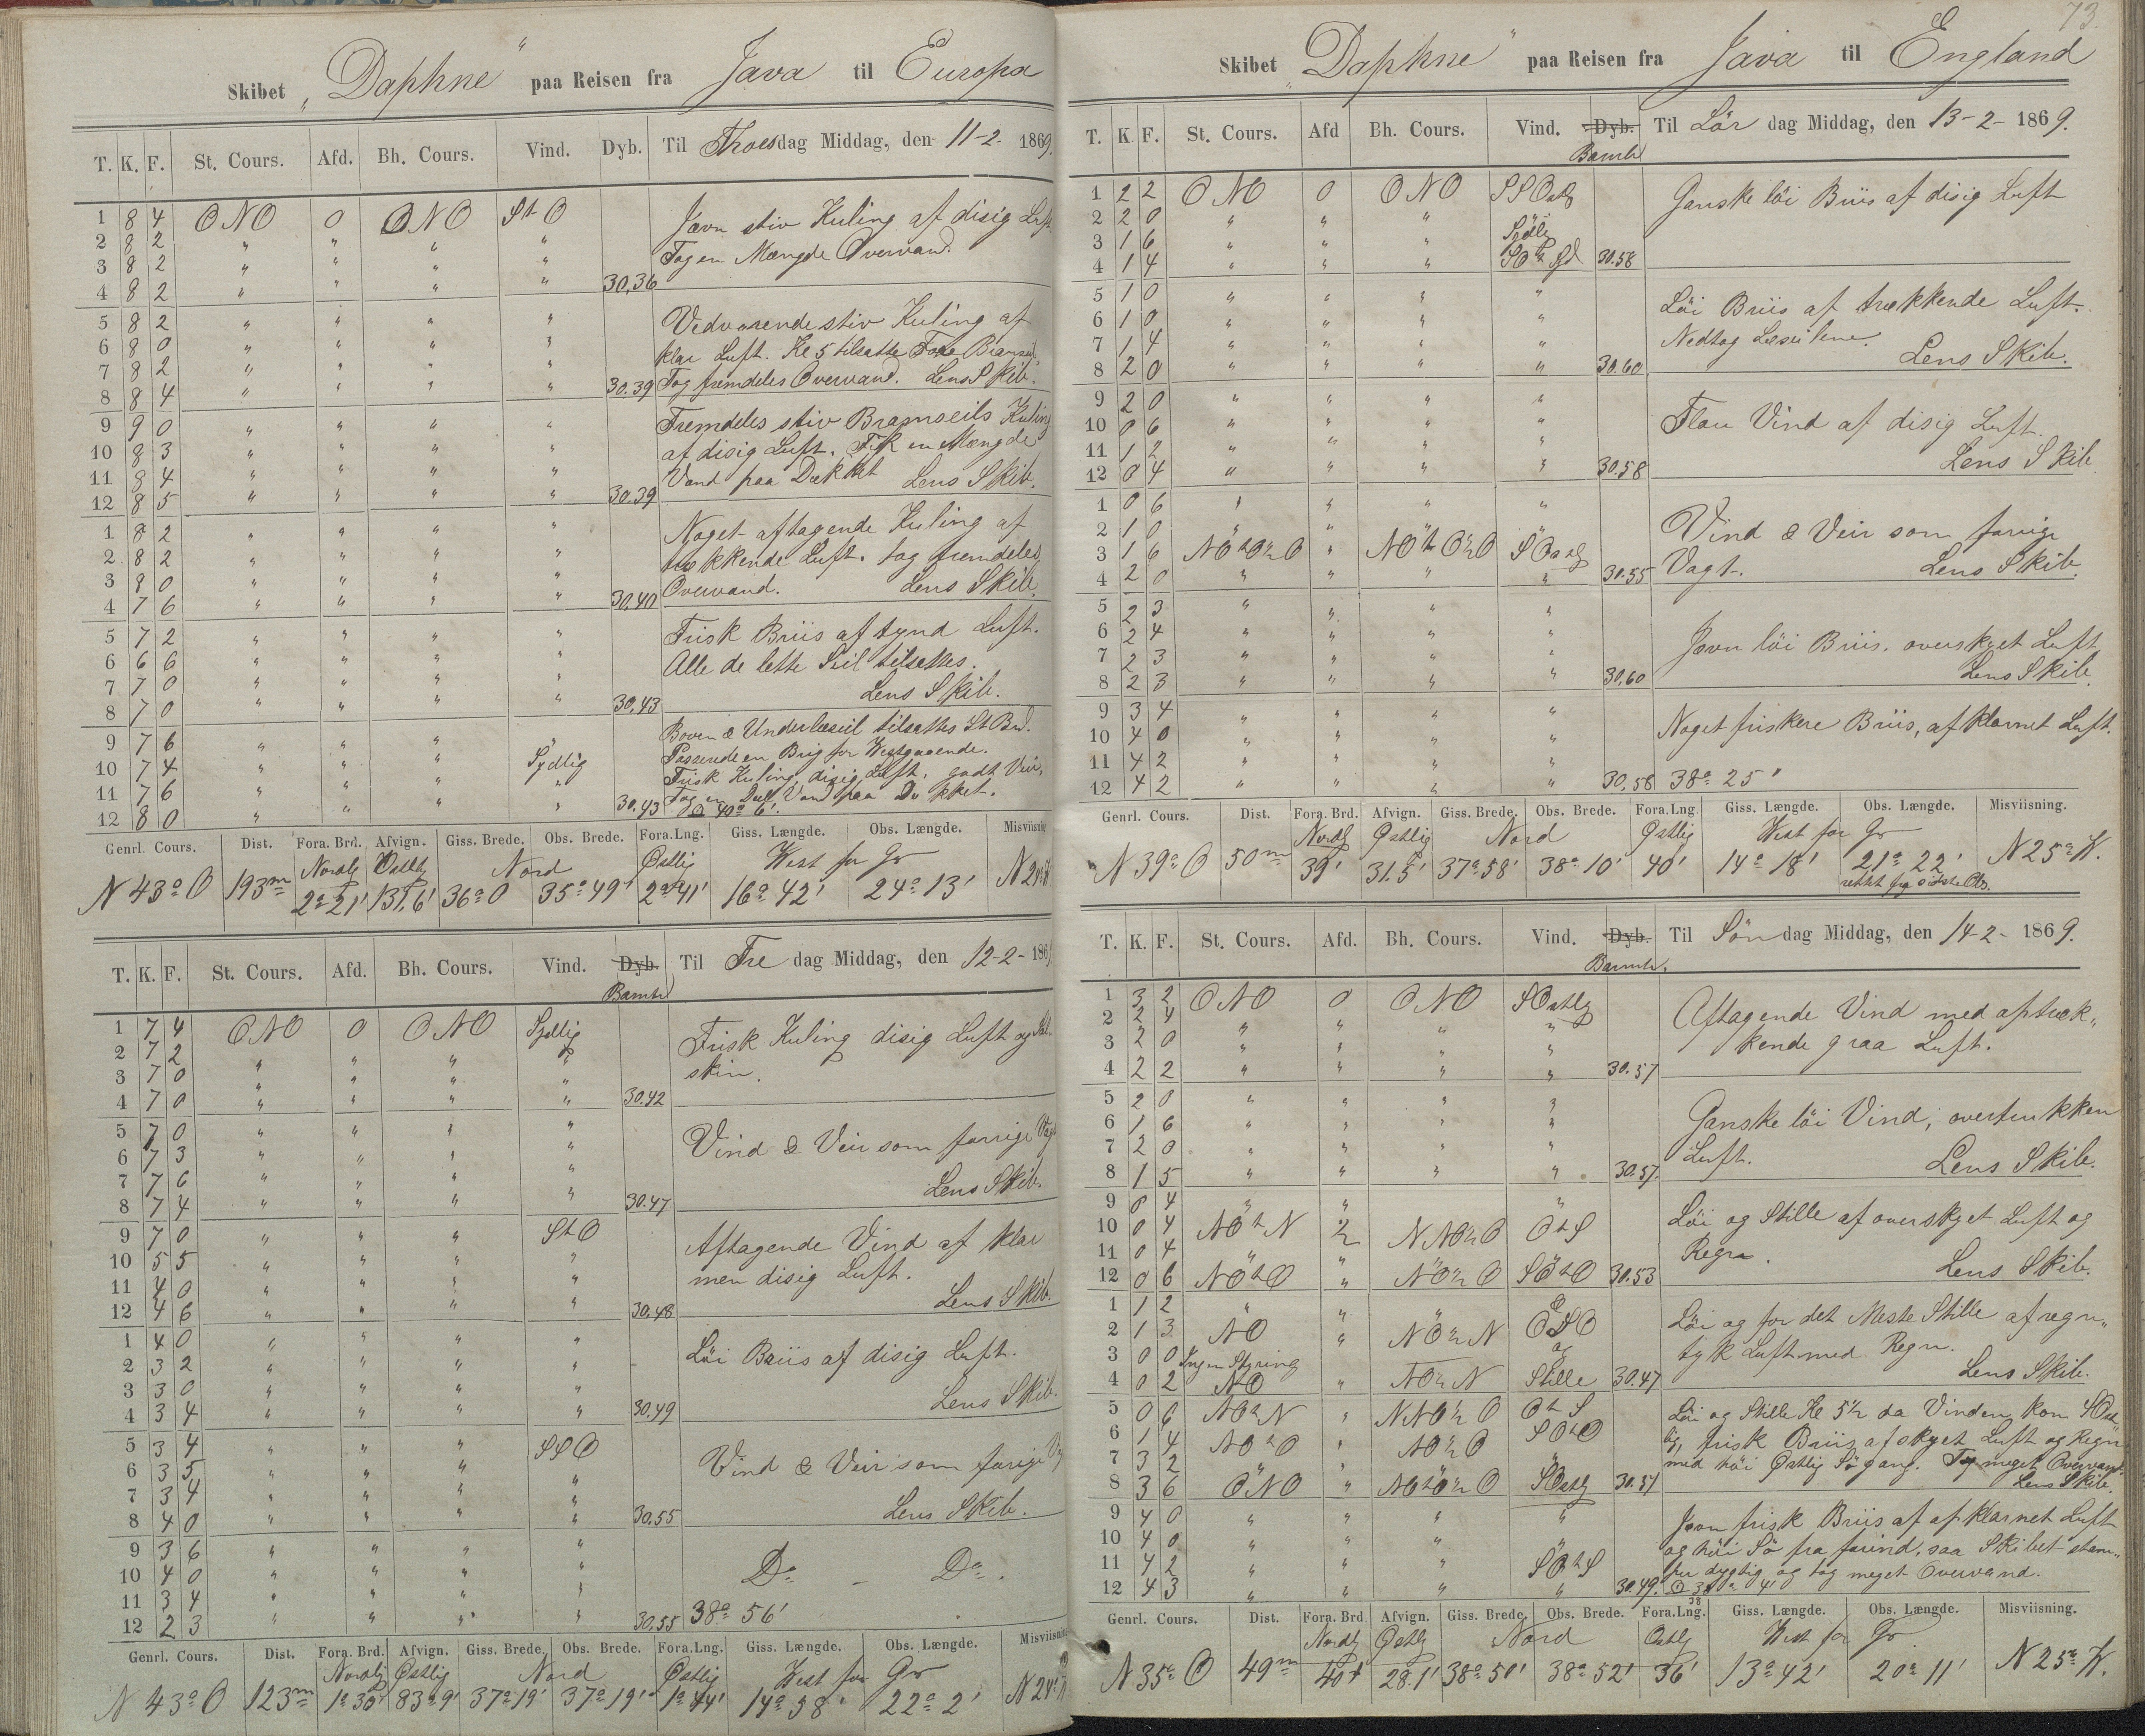 Skibet „Daphne“ paa Reisen fra Java til Europa
T. K. F. St. Cours. Afd. Bh. Cours. Vind. Dyb. Til Thorsdag Middag, den 11-2- 1869.
1 8 4 ONO 0 ONO StO Jævn stiv Kuling af disig Luft
2 8 2 " " " " Tog en Mængde Overvand.
3 8 2 " " " "
4 8 2 " " " " 30,36
5 8 2 " " " " Vedvarende stiv Kuling af
6 8 0 " " " " klar Luft. Kl 5 tilsatte Fore Bramseil,
7 8 2 " " " "
8 8 4 " " " " 30.39 Tog fremdeles Overvand. Lens Skib.
9 9 0 " " " " Fremdeles stiv Bramseils Kuling
10 8 3 " " " " af disig Luft. Fik en Mængde
11 8 4 " " " " Vand paa Dækket Lens Skib.
12 8 5 " " " " 30.39
1 8 2 " " " " Noget aftagende Kuling af
2 8 2 " " " " trækkende Luft. tog fremdeles
3 8 0 " " " " Overvand. Lens Skib.
4 7 6 " " " " 30,40
5 7 2 " " " " Frisk Briis af tynd Luft.
6 6 6 " " " " Alle de lette Seil tilsattes.
7 7 0 " " " " Lens Skib.
8 7 0 " " " " 30,43
9 7 6 " " " " Boven & Underlæseil tilsattes St Bd.
Passerede en Brig for Westgaaende.
10 7 4 " " " Sydlig Frisk Kuling, disig Luft, godt Veir,
11 7 6 " " " " Tog en Deel Vand paa Dækket.
12 8 0 " " " " 30,43 40° 6'
Genrl. Cours. Dist. Fora. Brd. Afvign. Giss. Brede. Obs. Brede. Fora. Lng. Giss. Længde. Obs. Længde. Misviisning
Nordlig Østlig Nord Østlig West for Gr
N 43° O 193m 2° 21' 131,6' 36° 0 35° 49' 2° 41' 16° 42' 24° 13'
T. K. F. St. Cours. Afd. Bh. Cours. Vind. Dyb. Til Fredag Middag, den 12-2- 186
Bamtr
1 7 4 ONO 0 ONO Sydlig Frisk Kuling disig Luft og Sol-
2 7 2 " " " " skin.
3 7 0 " " " "
4 7 0 " " " " 30.42
5 7 0 " " " " Vind & Veir som forrige Vagt
6 7 3 " " " "
7 7 6 " " " " Lens Skib.
8 7 4 " " " " 30.47
9 7 0 " " " StO Aftagende Vind af klar
10 5 5 " " " " men disig Luft.
11 4 0 " " " " Lens Skib.
12 4 6 " " " " 30,48
1 4 0 " " " " Löi Briis af disig Luft.
2 3 2 " " " "
3 3 0 " " " " Lens Skib.
4 3 4 " " " " 30,49
5 3 4 " " " SSO Vind & Veir som forige
6 3 5 " " " "
7 3 4 " " " " Lens Skib.
8 4 0 " " " " 30.55
9 3 6 " " " "
10 4 0 " " " " Do – Do.
11 3 4 " " " "
12 2 3 " " " " 30,55 38° 56'
Genrl. Cours. Dist. Fora. Brd. Afvign. Giss. Brede. Obs. Brede. Fora. Lng. Giss. Længde. Obs. Længde. Misviisning
Nordlig Østlig Nord Østlig West for Gr
N 43° O 123m 1° 30' 83,9' 37° 19' 37° 19' 1° 44' 14° 58' 22° 2'
73.
Skibet „Daphne“ paa Reisen fra Java til England
T. K. F. St. Cours. Afd. Bh. Cours. Vind. Dyb. Til Lördag Middag, den 13-2- 1869.
Bamtr
1 2 2 ONO 0 ONO SSOstlg Ganske löi Briis af disig Luft
2 2 0 " " "
3 1 6 " " " Sydlig
4 1 4 " " " 30.58
5 1 0 " " " " Löi Briis af trækkende Luft.
6 1 0 " " " "
7 1 4 " " " " Nedtog Læseilene.
8 2 0 " " " " 30.60 Lens Skib.
9 2 0 " " " "
10 0 6 " " " " Flau Vind af disig Luft.
11 1 2 " " " "
12 0 4 " " " " 30.58 Lens Skib
1 0 6 " " " " Vind & Veir som forrige
2 1 0 " " "
3 1 6 NOtO½O " NOtO½O SOstlg
4 2 0 " " " " 30.55 Vagt. Lens Skib.
5 2 3 " " " "
6 2 4 " " " " Jævn löi Briis, overskyet Luft
7 2 3 " " " "
8 2 3 " " " " 30,60 Lens Skib.
9 3 4 " " " " Noget friskere Briis, af klarnet Luft.
10 4 0 " " " "
11 4 2 " " " "
12 4 2 " " " " 30,58 38° 25'
Genrl. Cours. Dist. Fora. Brd. Afvign. Giss. Brede. Obs. Brede. Fora. Lng. Giss. Længde. Obs. Længde. Misviisning.
Nordlg Østlig Nord Østlig West for Gr
N 39° O 50m 39' 31.5' 37° 58' 38° 10' 40' 14° 18' 21° 22' N 25° W.
rettet fra sidste Obs.
T. K. F. St. Cours. Afd. Bh. Cours. Vind. Dyb. Til Söndag Middag, den 14-2- 1869.
Bamtr.
1 3 2 ONO 0 ONO SOstlg Aftagende Vind med optræk-
2 2 4 " " " "
3 2 0 " " " " kende graa Luft.
4 2 2 " " " " 30.57
5 2 0 " " " " Ganske löi Vind, overtrukken
6 1 6 " " " "
7 2 0 " " " " Luft.
8 1 5 " " " " 30.57. Lens Skib.
9 0 4 " " " Löi og Stille af overskyet Luft og
10 0 4 NOtN 2 NNO½O OtS
11 0 4 " " Regn.
12 0 6 NOtO " NO½O SOtO 30.53 Lens Skib.
1 1 2 " " " Löi og for det Meste Stille af regn-
2 1 3 NO " NO½N OSO tyk Luft med Regn.
3 0 0 Ingen Styring og
4 0 2 NO " NO½N Stille 30.47 Lens Skib.
5 0 6 NOtN " NNO½O OtS Löi og Stille Kl 5½ da Vinden kom SOst-
6 1 4 NOtO " NO½O SOtO lig, frisk Briis af skyet Luft og Regn
7 3 2 " med höi Østlig Sögang. Tog meget Overvand.
8 3 6 ONO " NOtO½O SOstlg 30.51 Lens Skib.
9 4 0 " " " " Jævn frisk Briis af af klarnet Luft
10 4 0 " " " og höi Sö fra forind, saa Skibet stam-
11 4 2 " " " SOtS per dygtig og tog meget Overvand.
12 4 3 " " " " 30.49.
Genrl. Cours. Dist. Fora. Brd. Afvign. Giss. Brede. Obs. Brede. Fora. Lng. Giss. Længde. Obs. Længde. Misviisning.
Nordlg Østlg Nord Østlg West for Gr
N 35° O 49m 40' 28.1' 38° 50' 38° 52' 36' 13° 42' 20° 11' N 25° W.